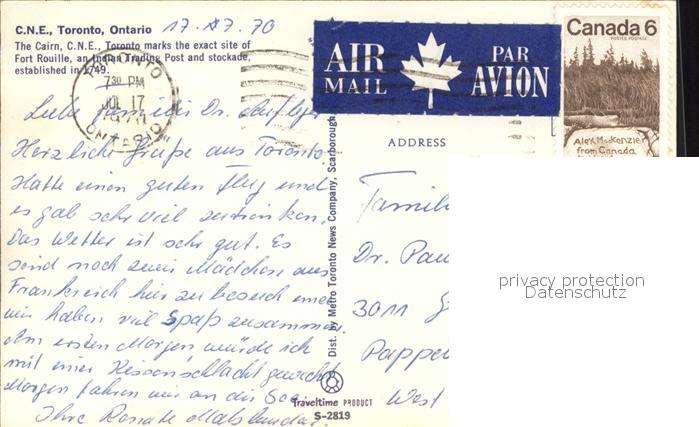 C.N.E., Toronto, Ontario 17.7.70
The Cairn, C.N.E., Toronto marks the exact site of
Fort Rouille, an Indian Trading Post and stockade,
established in 1749.
TORONTO
7 30 PM
JUL 17
ONTARIO
AIR
MAIL
PAR
AVION
Canada 6
POSTES POSTAGE
Alex MacKenzie
from Canada
ADDRESS
Liebe Familie Dr.
Herzliche Grüße aus Toronto.
Hatte einen guten Flug und
es gab sehr viel zu trinken.
Das Wetter ist sehr gut. Es
sind noch zwei Mädchen aus
Frankreich hier zu besuch und
wir haben viel Spaß zusammen.
Am ersten Morgen würde ich
mit einer Kissenschlacht geweckt
Morgen fahren wir an die See
Ihre Renate
Dist. by Metro Toronto News Company, Scarborough,
Famili
Dr. Pau
3011
Pappe
West
Traveltime PRODUCT
S-2819
privacy protection
Datenschutz